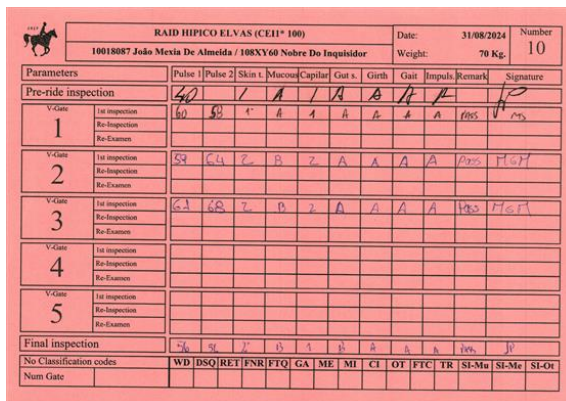 RAID HIPICO ELVAS (CEI1* 100) Date: 31/08/2024 Number
10018087 João Mexia De Almeida / 108XY60 Nobre Do Inquisidor Weight: 70 Kg. 10
Parameters Pulse 1 Pulse 2 Skin t. Mucous Capilar Gut s. Girth Gait Impuls. Remark Signature
Pre-ride inspection 40 1 A 1 A A A A
V-Gate 1 1st inspection 60 58 1 A 1 A A A A PASS MS
Re-Inspection
Re-Examen
V-Gate 2 1st inspection 59 64 2 B 2 A A A A Pass MGM
Re-Inspection
Re-Examen
V-Gate 3 1st inspection 61 68 2 B 2 A A A A Pass MGM
Re-Inspection
Re-Examen
V-Gate 4 1st inspection
Re-Inspection
Re-Examen
V-Gate 5 1st inspection
Re-Inspection
Re-Examen
Final inspection 56 B 1 A A A
No Classification codes WD DSQ RET FNR FTQ GA ME MI CI OT FTC TR SI-Mu SI-Me SI-Ot
Num Gate